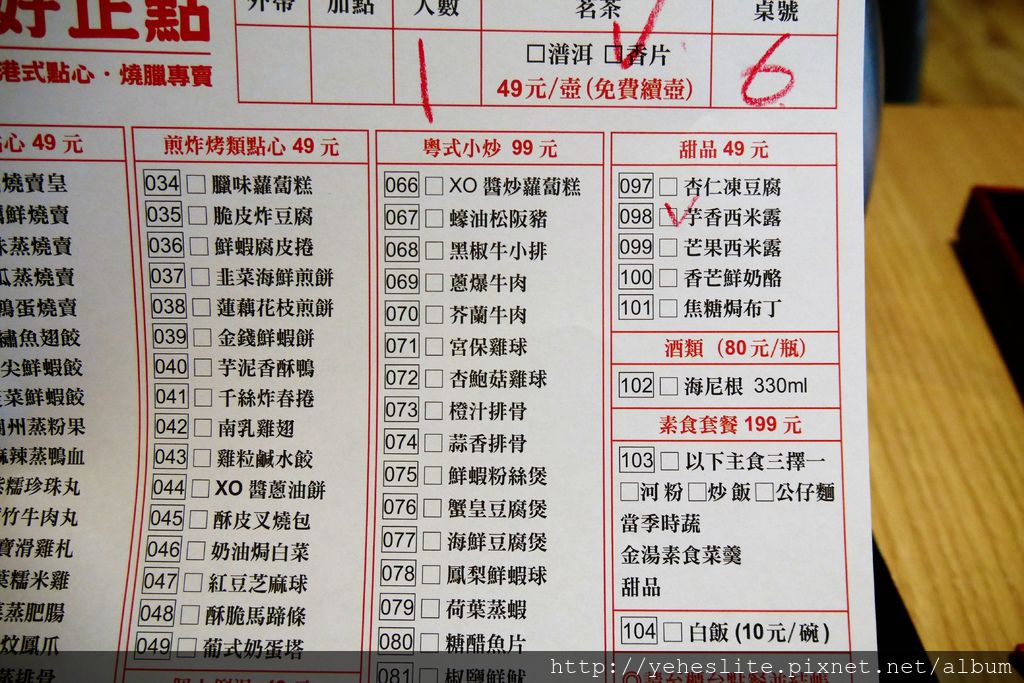 好正點
港式點心・燒臘專賣
外帶 加點 人數 茗茶 桌號
1 □潽洱 □香片 6
49元/壺(免費續壺)
心 49 元
燒賣皇
鮮燒賣
蒸燒賣
瓜蒸燒賣
鴨蛋燒賣
魚翅餃
尖鮮蝦餃
菜鮮蝦餃
州蒸粉果
麻辣蒸鴨血
糯珍珠丸
竹牛肉丸
寶滑雞札
葉糯米雞
蒸肥腸
鳳爪
蒸排骨
煎炸烤類點心 49 元
034 □ 臘味蘿蔔糕
035 □ 脆皮炸豆腐
036 □ 鮮蝦腐皮捲
037 □ 韭菜海鮮煎餅
038 □ 蓮藕花枝煎餅
039 □ 金錢鮮蝦餅
040 □ 芋泥香酥鴨
041 □ 千絲炸春捲
042 □ 南乳雞翅
043 □ 雞粒鹹水餃
044 □ XO 醬蔥油餅
045 □ 酥皮叉燒包
046 □ 奶油焗白菜
047 □ 紅豆芝麻球
048 □ 酥脆馬蹄條
049 □ 葡式奶蛋塔
粵式小炒 99 元
066 □ XO 醬炒蘿蔔糕
067 □ 蠔油松阪豬
068 □ 黑椒牛小排
069 □ 蔥爆牛肉
070 □ 芥蘭牛肉
071 □ 宮保雞球
072 □ 杏鮑菇雞球
073 □ 橙汁排骨
074 □ 蒜香排骨
075 □ 鮮蝦粉絲煲
076 □ 蟹皇豆腐煲
077 □ 海鮮豆腐煲
078 □ 鳳梨鮮蝦球
079 □ 荷葉蒸蝦
080 □ 糖醋魚片
081 □ 椒鹽鮮魷
甜品 49 元
097 □ 杏仁凍豆腐
098 □ 芋香西米露
099 □ 芒果西米露
100 □ 香芒鮮奶酪
101 □ 焦糖焗布丁
酒類（80元/瓶）
102 □ 海尼根 330ml
素食套餐 199 元
103 □ 以下主食三擇一
□河粉 □炒飯 □公仔麵
當季時蔬
金湯素食菜羹
甜品
104 □ 白飯 (10元/碗)
http://yeheslite.pixnet.net/album